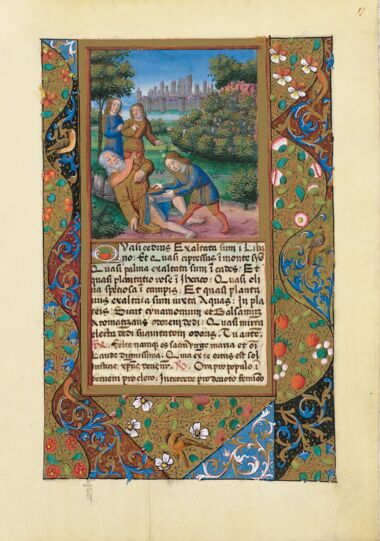 17
Quasi cedrus Exaltata sum i Liba
no: Et Quasi cipressus i monte syo
Quasi palma exaltata sum i cades: Et
quasi plantatio rose i Iherico: Quasi oli
ua speciosa i campis: Et quasi platan
nus exaltata sum iuxta Aquas: In pla
teis: Sicut cynamomum et Balsamum
Aromatizans odorem dedi: Quasi mirra
electa dedi suauitatem odoris.
Felix namque es sacra uirgo maria et
Laude dignissima. Quia ex te ortus est sol
iusticie, Ora pro populo i
terueni pro clero, Intercede pro deuoto femineo